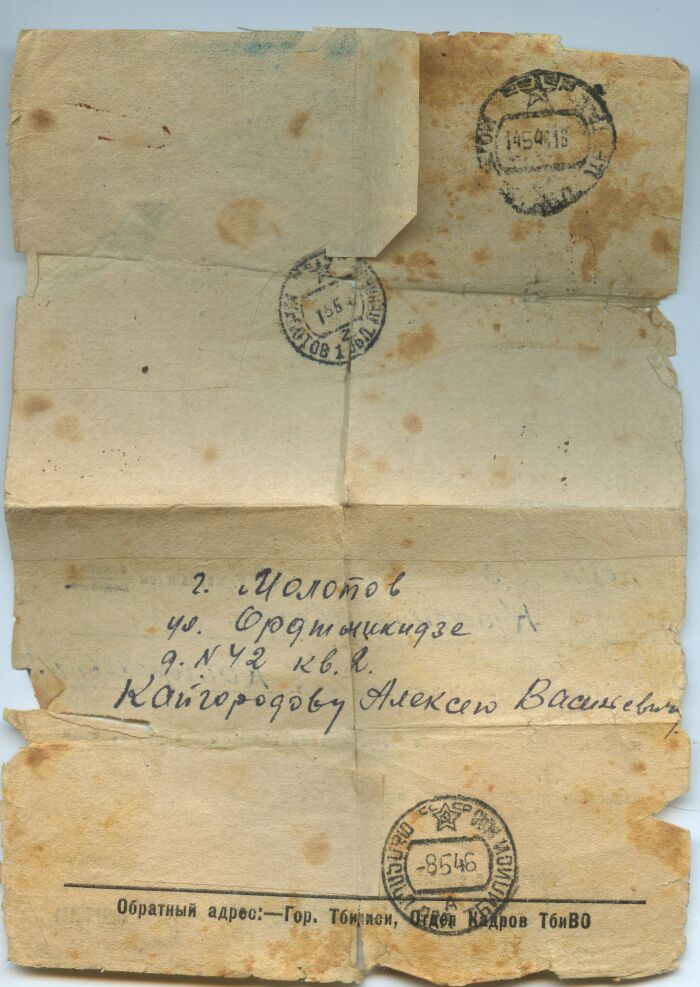 14546.16
МОЛОТОВ 1
г. Молотов
ул. Орджоникидзе
д. N 42 кв. 2.
Кайгородову Алексею Васильевичу
СССР
-8546
А
Обратный адрес:—Гор. Тбилиси, Отдел Кадров ТбиВО